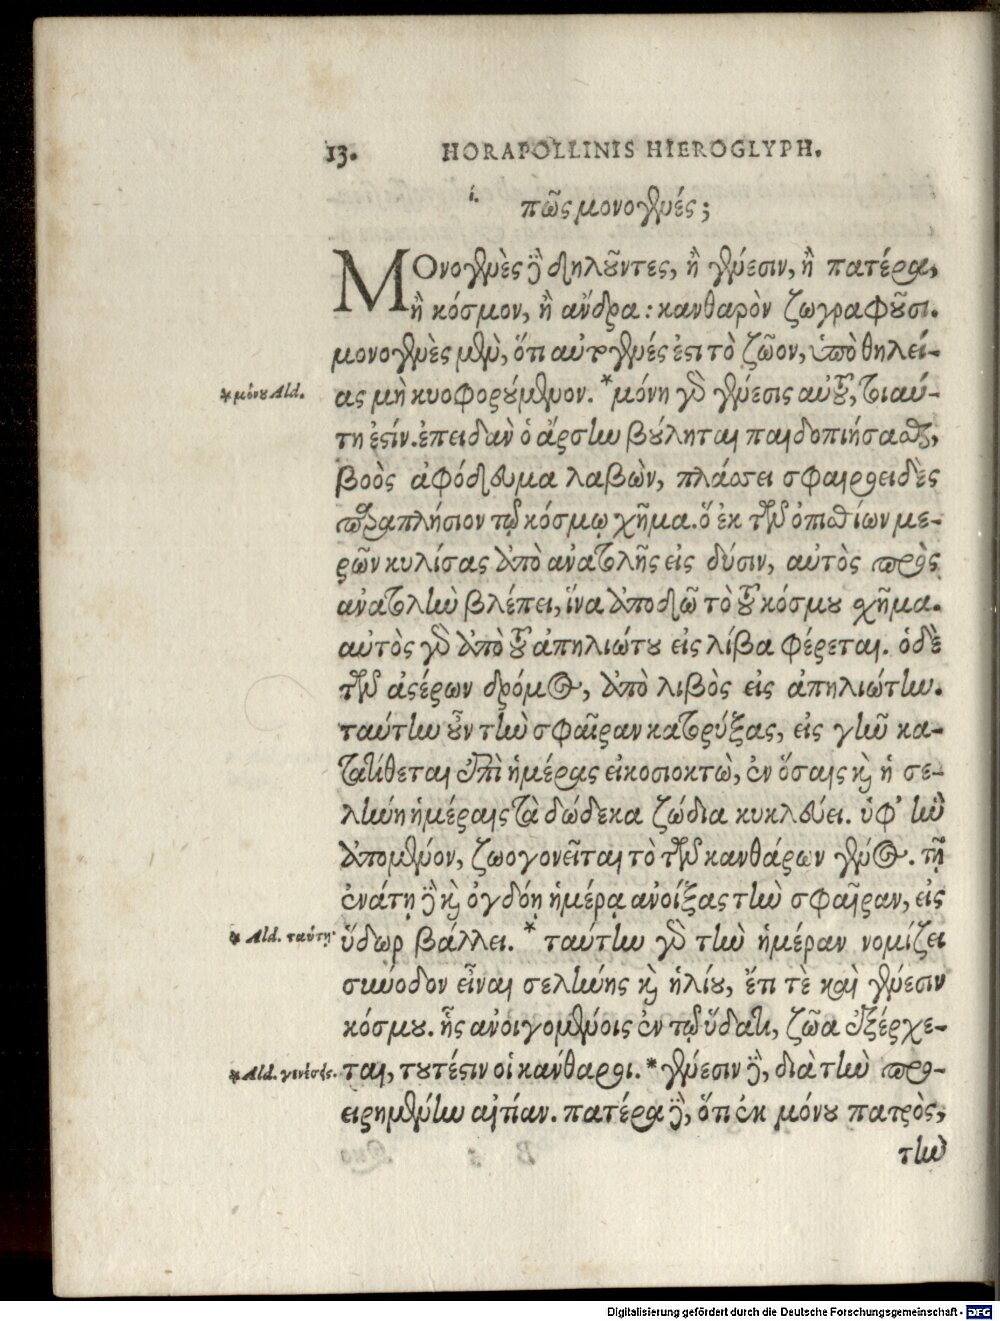 13. HORAPOLLINIS HIEROGLYPH.
ί.
πῶς μονογενές;
ΜΟνογενὲς ȣ̓ δηλοῦντες, ἢ γένεσιν, ἢ πατέρα,
ἢ κόσμον, ἢ ἄνδρα: κανθαρὸν ζωγραφοῦσι.
μονογενὲς μὲν, ὅτι αὐτογενές ἐστι τὸ ζῶον, ὑπὸ θηλεί-
* μόνου Ald.
ας μὴ κυοφορούμενον. *μόνη γὰρ γένεσις αὐτοῦ, τοιαύ-
τη ἐστίν. ἐπειδὰν ὁ ἄρσην βούληται παιδοπιήσασθαι,
βοὸς ἀφόδευμα λαβὼν, πλάσσει σφαιροειδὲς
παραπλήσιον τῷ κόσμῳ χῆμα. ὅ ἐκ τῶν ὀπισθίων με-
ρῶν κυλίσας ἀπὸ ἀνατολῆς εἰς δύσιν, αὐτὸς πρὸς
ἀνατολὴν βλέπει, ἵνα ἀποδῶ τὸ τοῦ κόσμου σχῆμα.
αὐτὸς γὰρ ἀπὸ τοῦ ἀπηλιώτου εἰς λίβα φέρεται. ὁδὲ
τῶν ἀστέρων δρόμος, ἀπὸ λιβὸς εἰς ἀπηλιώτην.
ταύτην οὖν τὴν σφαῖραν κατορύξας, εἰς γῆν κα-
τατίθεται ἐπὶ ἡμέρας εἰκοσιοκτὼ, ἐν ὅσαις καὶ ἡ σε-
λήνη ἡμέραις τὰ δώδεκα ζώδια κυκλεύει. ὑφ' ἣν
ἀπομένον, ζωογονεῖται τὸ τῶν κανθάρων γένος. τῇ
ἐνάτῃ δὲ καὶ ὀγδόῃ ἡμέρᾳ ἀνοίξας τὴν σφαῖραν, εἰς
* Ald. ταύτῃ
ὕδωρ βάλλει. * ταύτην γὰρ τὴν ἡμέραν νομίζει
σύνοδον εἶναι σελήνης καὶ ἡλίου, ἔτι τὲ καὶ γένεσιν
κόσμου. ἧς ἀνοιγομένοις ἐν τῷ ὕδατι, ζῶα ἐξέρχε-
* Ald. γενέσεις.
ται, τουτέστιν οἱ κάνθαροι. * γένεσιν δὲ, διὰ τὴν προ-
ειρημένην αἰτίαν. πατέρα δὲ, ὅτι ἐκ μόνου πατρὸς,
τὴν